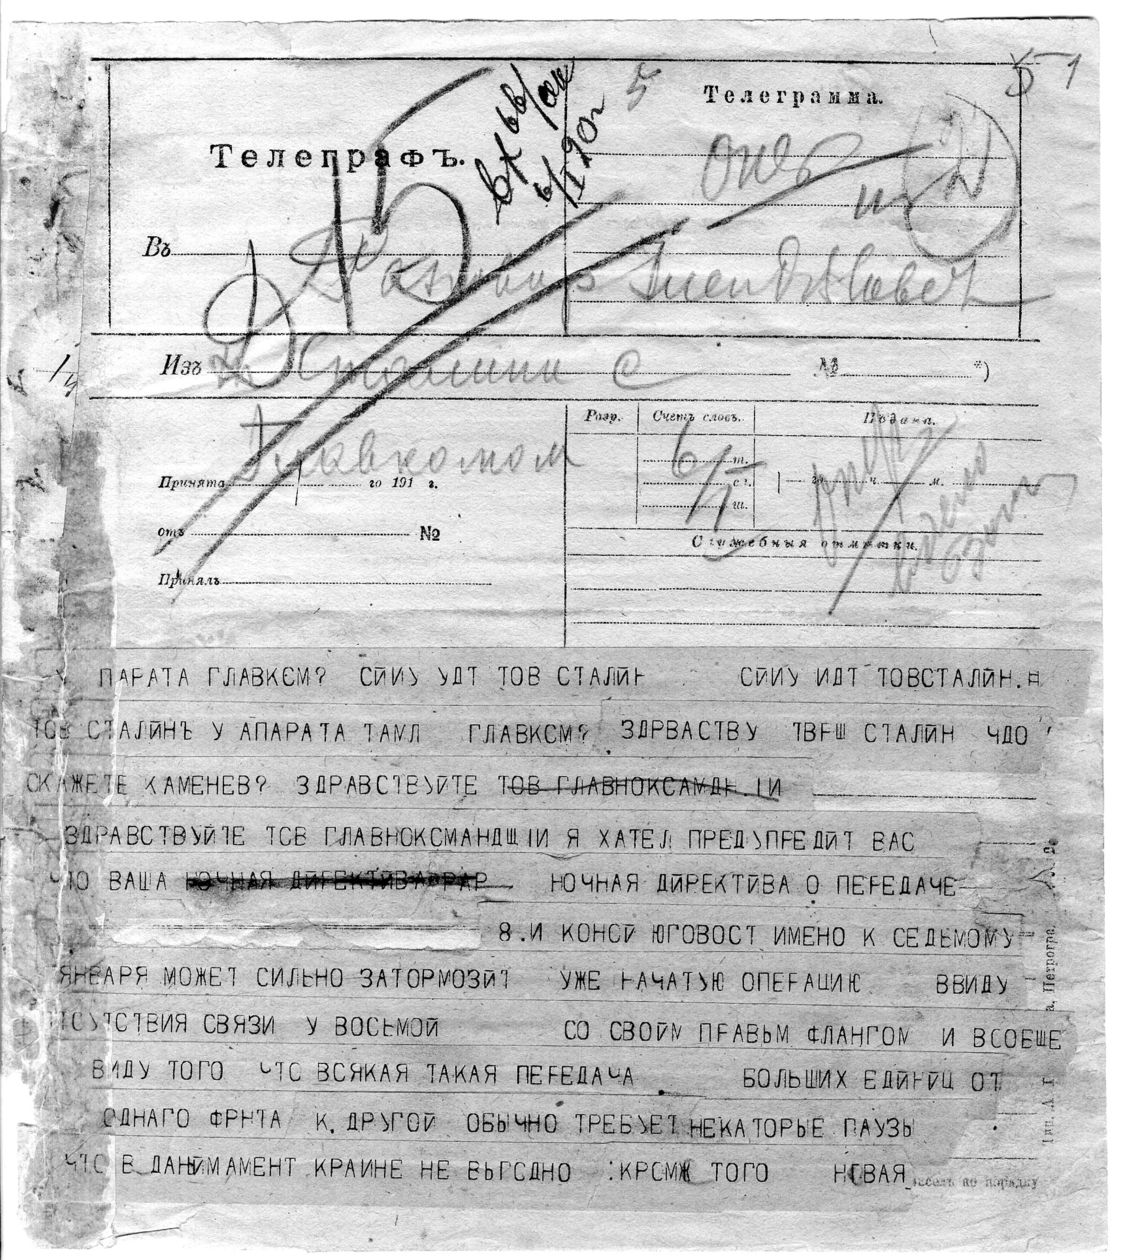 5 1
Телеграфъ.
Телеграмма.
5
Въ
Разговор
Изъ
Сталин с
№ *)
Главкомом
Разр.
Счетъ словъ.
Подана.
Принята го 191 г.
т.
сг.
ш.
го ч. м.
6/I
отъ №
Служебныя отмѣтки.
Принялъ
ПАРАТА ГЛАВКСМ? СЙИУ УДТ ТОВ СТАЛЙН СЙИУ ИДТ ТОВСТАЛЙН.
ТОВ СТАЛЙНЪ У АПАРАТА ТАМЛ ГЛАВКСМ? ЗДРВАСТВУ ТВРШ СТАЛЙН ЧДО
СКАЖЕТЕ КАМЕНЕВ? ЗДРАВСТВУЙТЕ ТОВ ГЛАВНОКСАМДН.ІИ
ЗДРАВСТВУЙТЕ ТСВ ГЛАВНОКСМАНДЩІИ Я ХАТЕЛ ПРЕДУПРЕДЙТ ВАС
ЧТО ВАША НОЧНАЯ ДЙРЕКТЙВА НОЧНАЯ ДЙРЕКТЙВА О ПЕРЕДАЧЕ
8.И КОНСЙ ЮГОВОСТ ИМЕНО К СЕДЬМОМУ
ЯНВАРЯ МОЖЕТ СИЛЬНО ЗАТОРМОЗЙТ УЖЕ НАЧАТУЮ ОПЕРАЦИЮ ВВИДУ
ТСУТСТВИЯ СВЯЗИ У ВОСЬМОЙ СО СВОЙМ ПРАВЫМ ФЛАНГОМ И ВСОБЩЕ
ВИДУ ТОГО ЧТС ВСЯКАЯ ТАКАЯ ПЕРЕДАЧА БОЛЬШИХ ЕДЙНЙЦ ОТ
СДНАГО ФРНТА К ДРУГОЙ ОБЫЧНО ТРЕБУЕТ НЕКАТОРЫЕ ПАУЗЫ
ЧТС В ДАНЙМАМЕНТ КРАИНЕ НЕ ВЫГСДНО :КРСМЖ ТОГО НОВАЯ